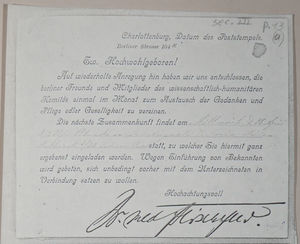 SEC. III
p. 13
(a)
Charlottenburg, Datum des Poststempels.
Berliner Strasse 104
Ew. Hochwohlgeboren!
Auf wiederholte Anregung hin haben wir uns entschlossen, die
berliner Freunde und Mitglieder des wissenschaftlich-humanitären
Komités einmal im Monat zum Austausch der Gedanken und
Pflege edler Geselligkeit zu vereinen.
Die nächste Zusammenkunft findet am
statt, zu welcher Sie hiermit ganz
ergebenst eingeladen werden. Wegen Einführung von Bekannten
wird gebeten, sich unbedingt vorher mit dem Unterzeichneten in
Verbindung setzen zu wollen.
Hochachtungsvoll